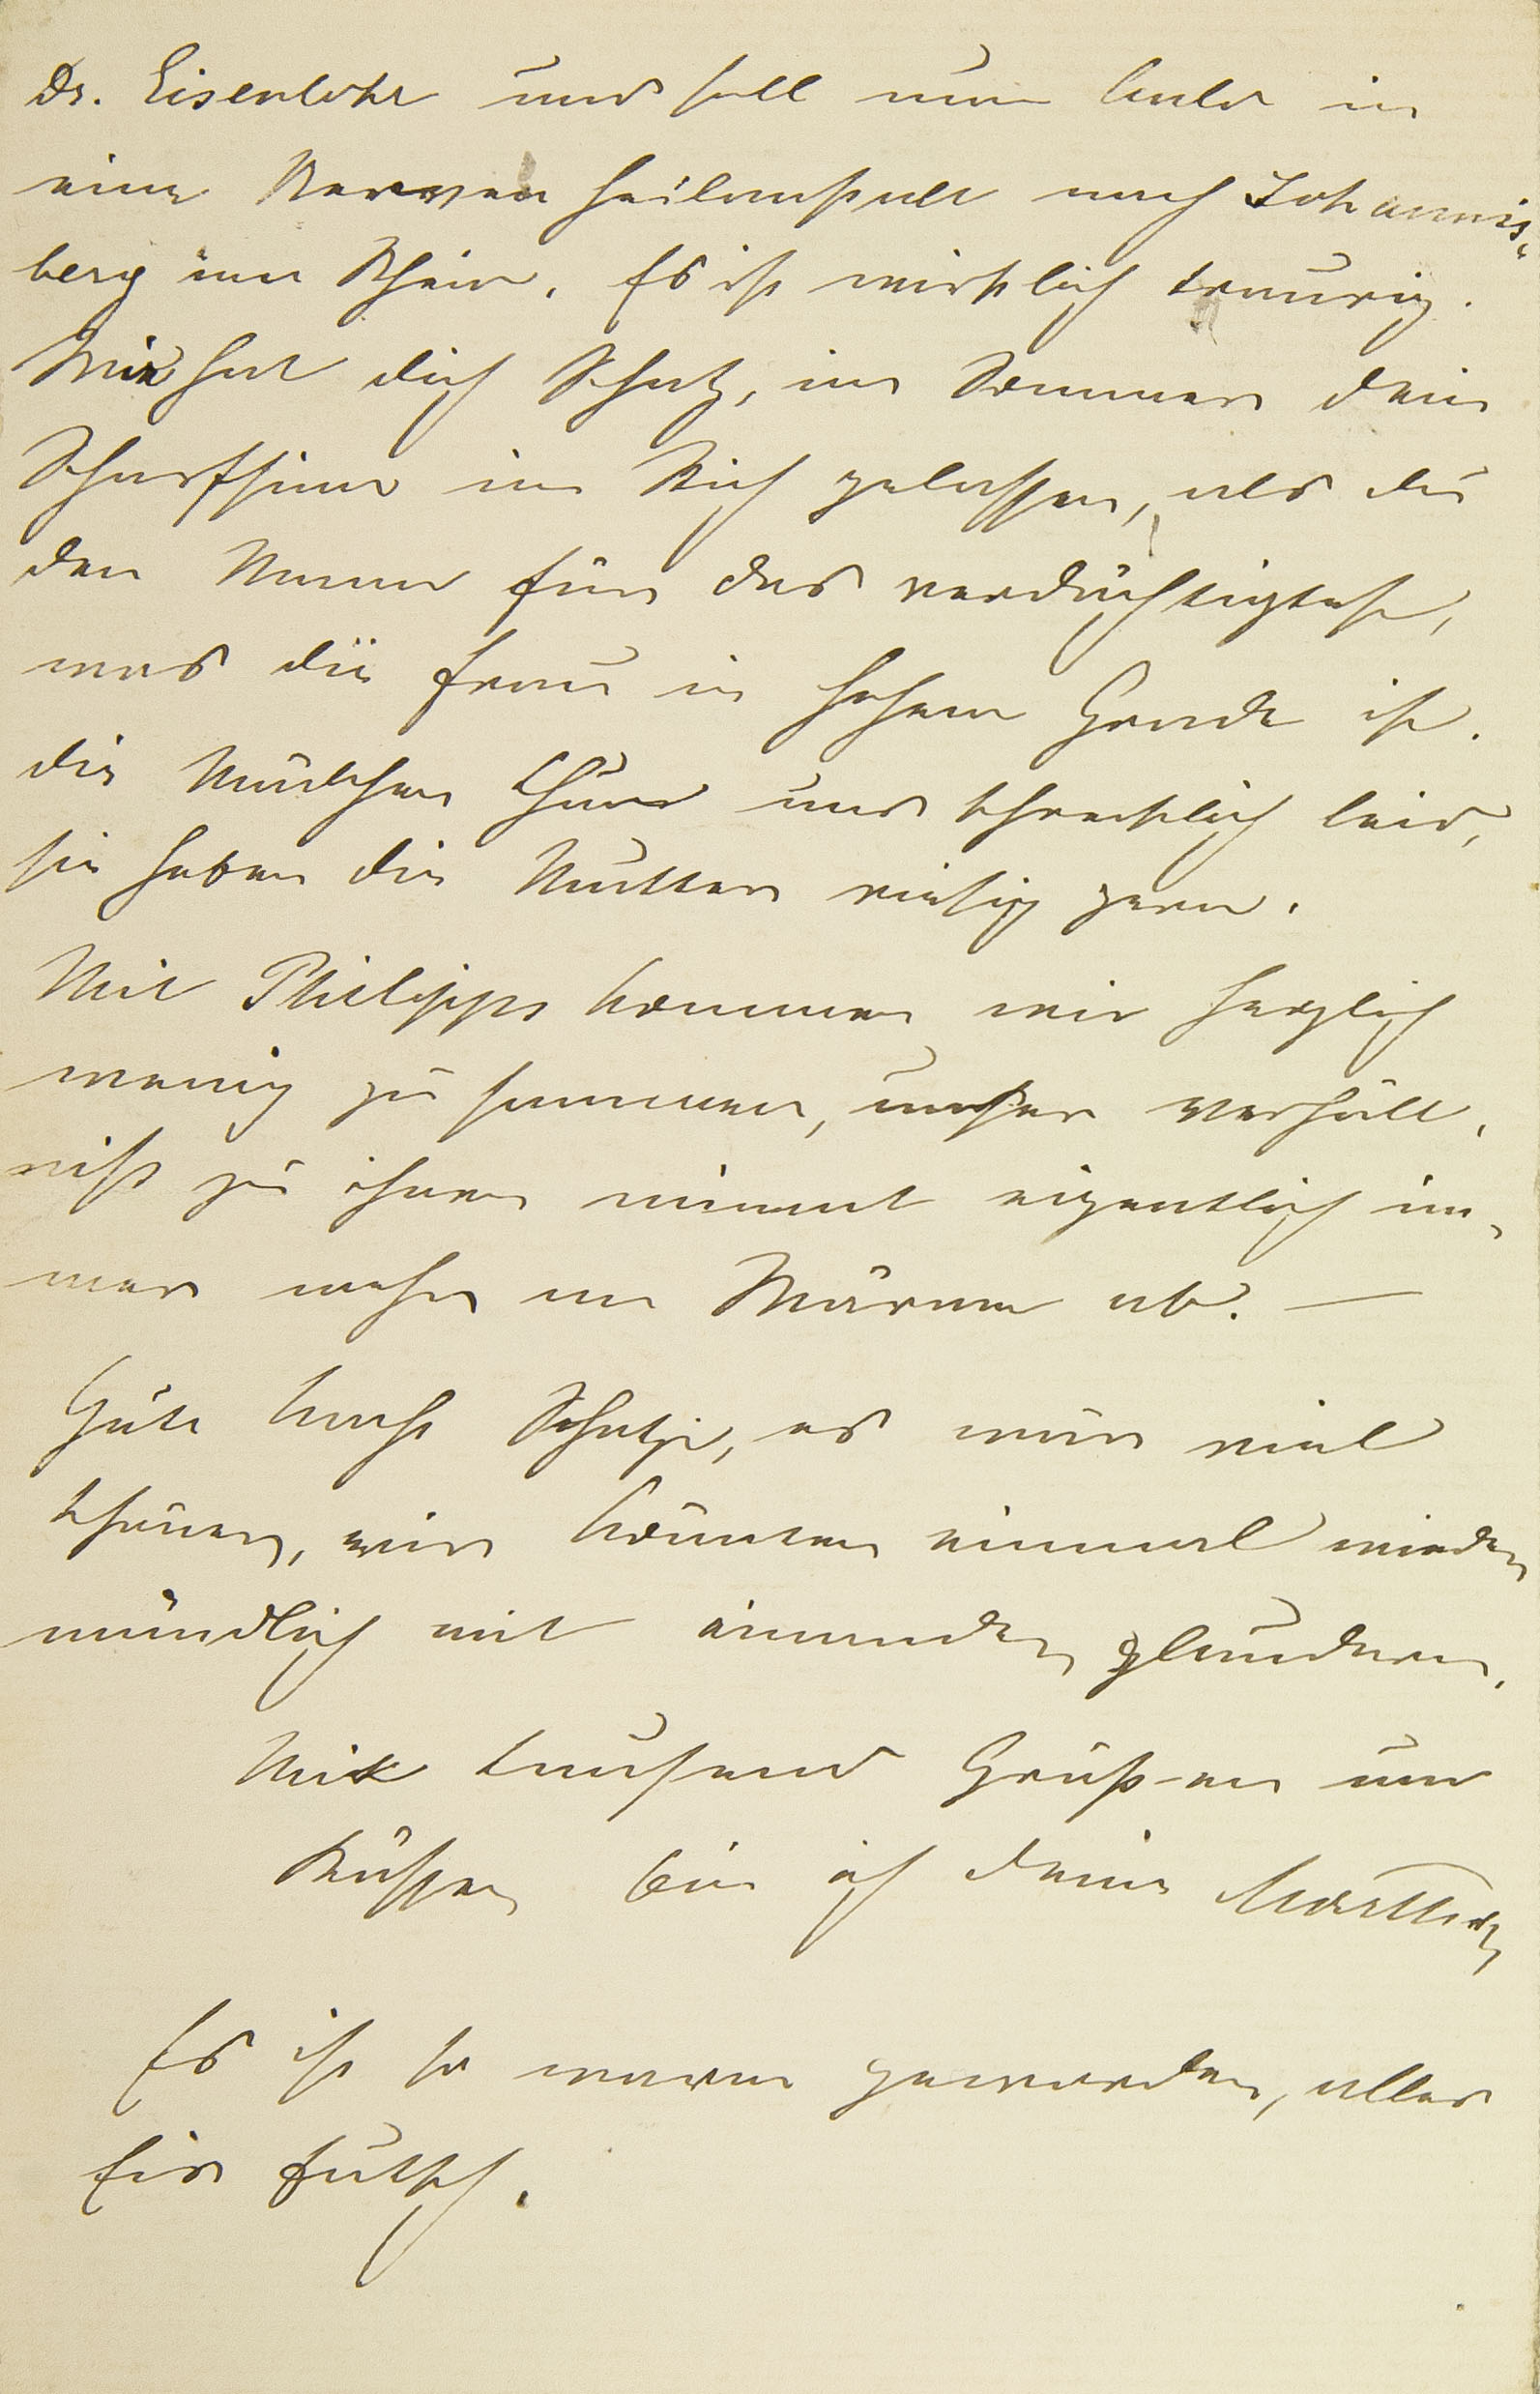 Dr. Eisenlohr und soll nun bald in
eine Nervenheilanstalt nach Johannis-
berg am Rhein. Es ist wirklich traurig.
Wie hat dich Schatz, im Sommer dein
Scharfsinn im Stich gelassen, als du
den Mann für das verdächtigtest,
was die Frau in hohem Grade ist.
die Mädchen thun uns schrecklich leid,
sie haben die Mutter riesig gern.
Mit Philipps kommen wir herzlich
wenig zusammen, unser Verhält-
niß zu ihnen nimmt eigentlich im-
mer mehr an Wärme ab. —
Gute Nacht Schatzi, es wär viel
schöner, wir könnten einmal wieder
mündlich mit einander plaudern.
Mit tausend Grüßen und
Küssen bin ich deine
Es ist so warm geworden, alles
Eis futsch.